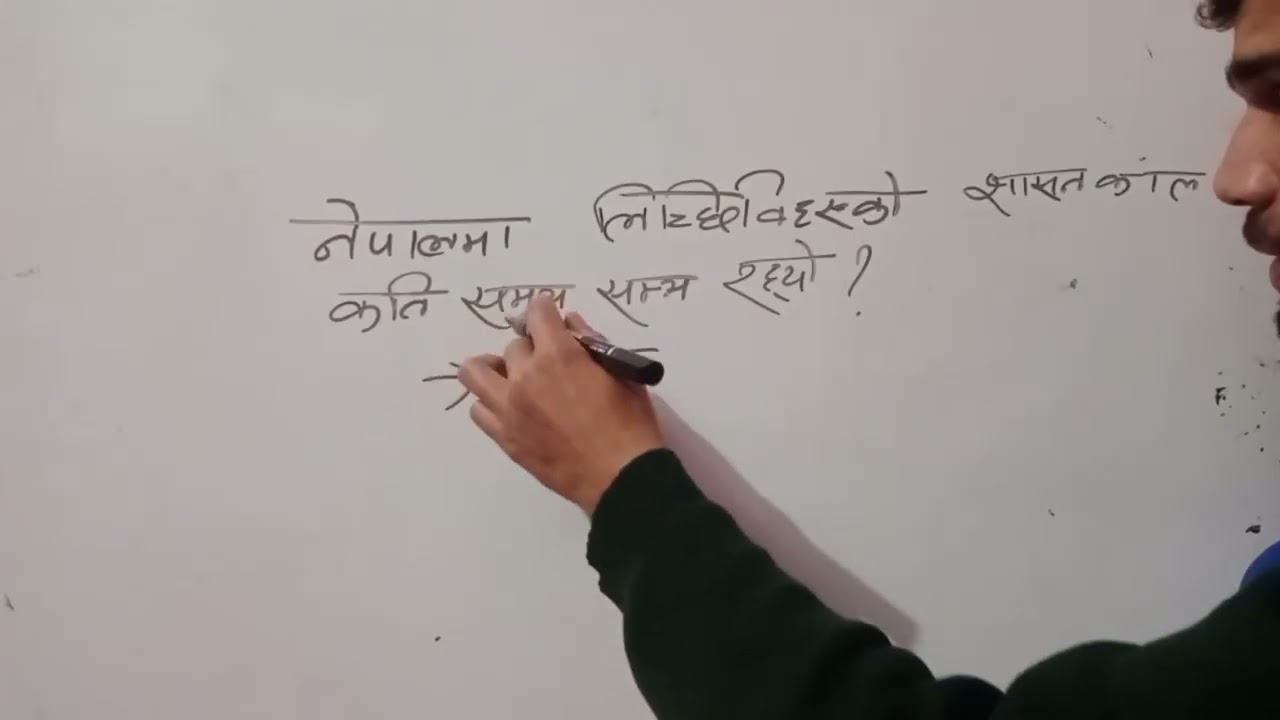 नेपालमा लिच्छविहरुको शासनकाल
कति समय सम्म रह्यो ?